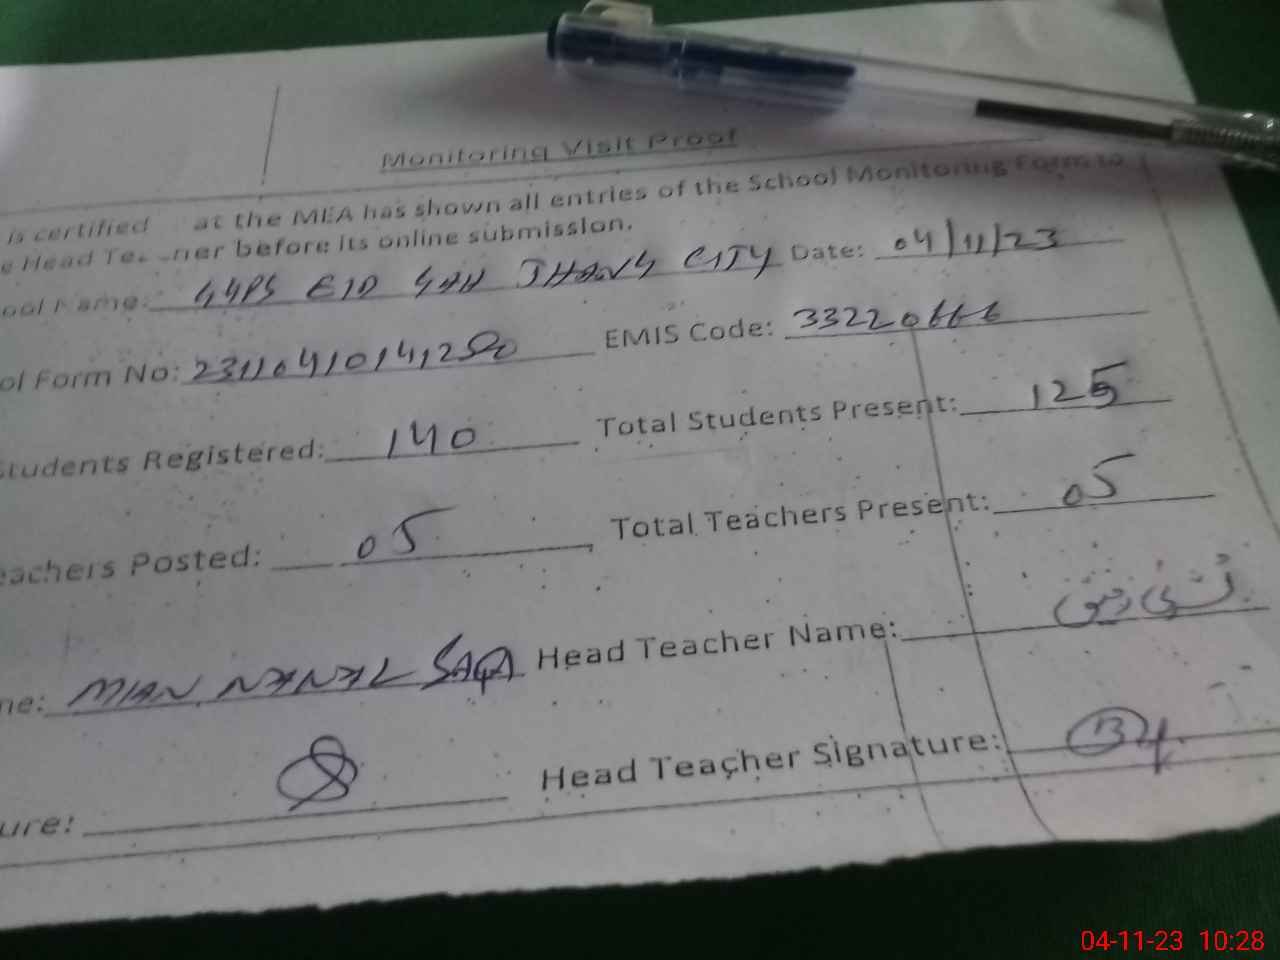 Monitoring Visit Proof
is certified at the MEA has shown all entries of the School Monitoring Form to
e Head Te ner before its online submission.
ool Name: GGPS EID GAH JHANG CITY Date: 04/11/23
ol Form No: EMIS Code: 33220666
Students Registered: 140 Total Students Present: 125
eachers Posted: 05 Total Teachers Present: 05
me: MIAN Head Teacher Name:
ure: Head Teacher Signature:
04-11-23 10:28